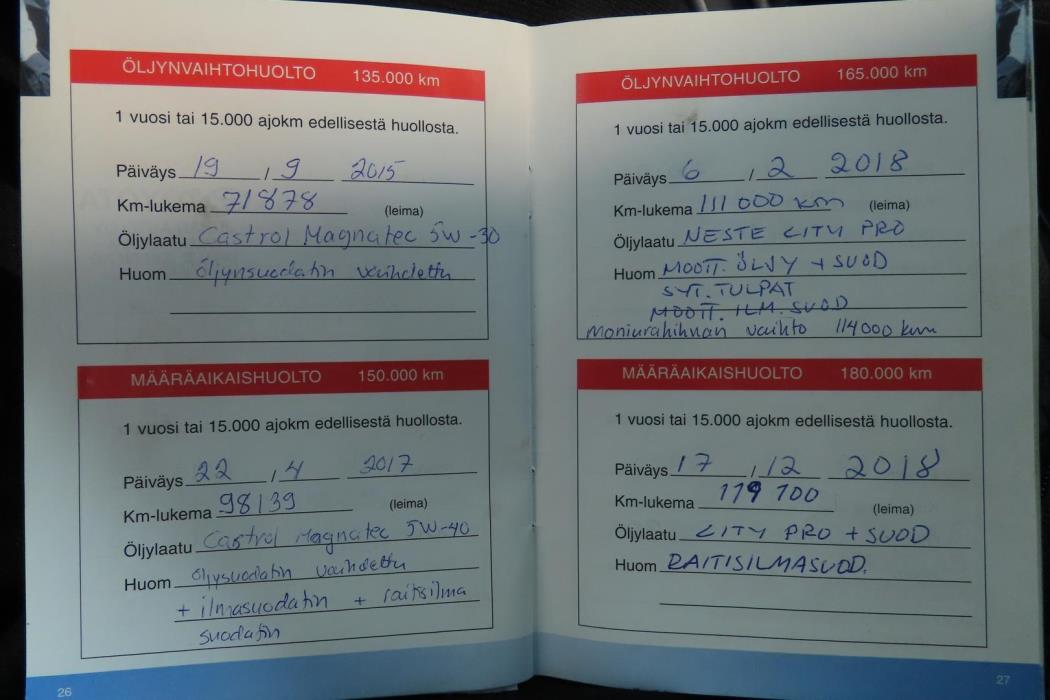 ÖLJYNVAIHTOHUOLTO 135.000 km
1 vuosi tai 15.000 ajokm edellisestä huollosta.
Päiväys 19 / 9 2015
Km-lukema 71878 (leima)
Öljylaatu Castrol Magnatec 5W-30
Huom öljynsuodatin vaihdettu
MÄÄRÄAIKAISHUOLTO 150.000 km
1 vuosi tai 15.000 ajokm edellisestä huollosta.
Päiväys 22 / 4 2017
Km-lukema 98139 (leima)
Öljylaatu Castrol Magnatec 5W-40
Huom öljysuodatin vaihdettu
+ ilmasuodatin + raitisilma
suodatin
26
ÖLJYNVAIHTOHUOLTO 165.000 km
1 vuosi tai 15.000 ajokm edellisestä huollosta.
Päiväys 6 / 2 2018
Km-lukema 111 000 km (leima)
Öljylaatu NESTE CITY PRO
Huom MOOTT. ÖLJY + SUOD
SYT. TULPAT
MOOTT. ILM. SUOD
moniurahihnan vaihto 114000 km
MÄÄRÄAIKAISHUOLTO 180.000 km
1 vuosi tai 15.000 ajokm edellisestä huollosta.
Päiväys 17 / 12 2018
Km-lukema 119 700 (leima)
Öljylaatu CITY PRO + SUOD
Huom RAITISILMASUOD.
27